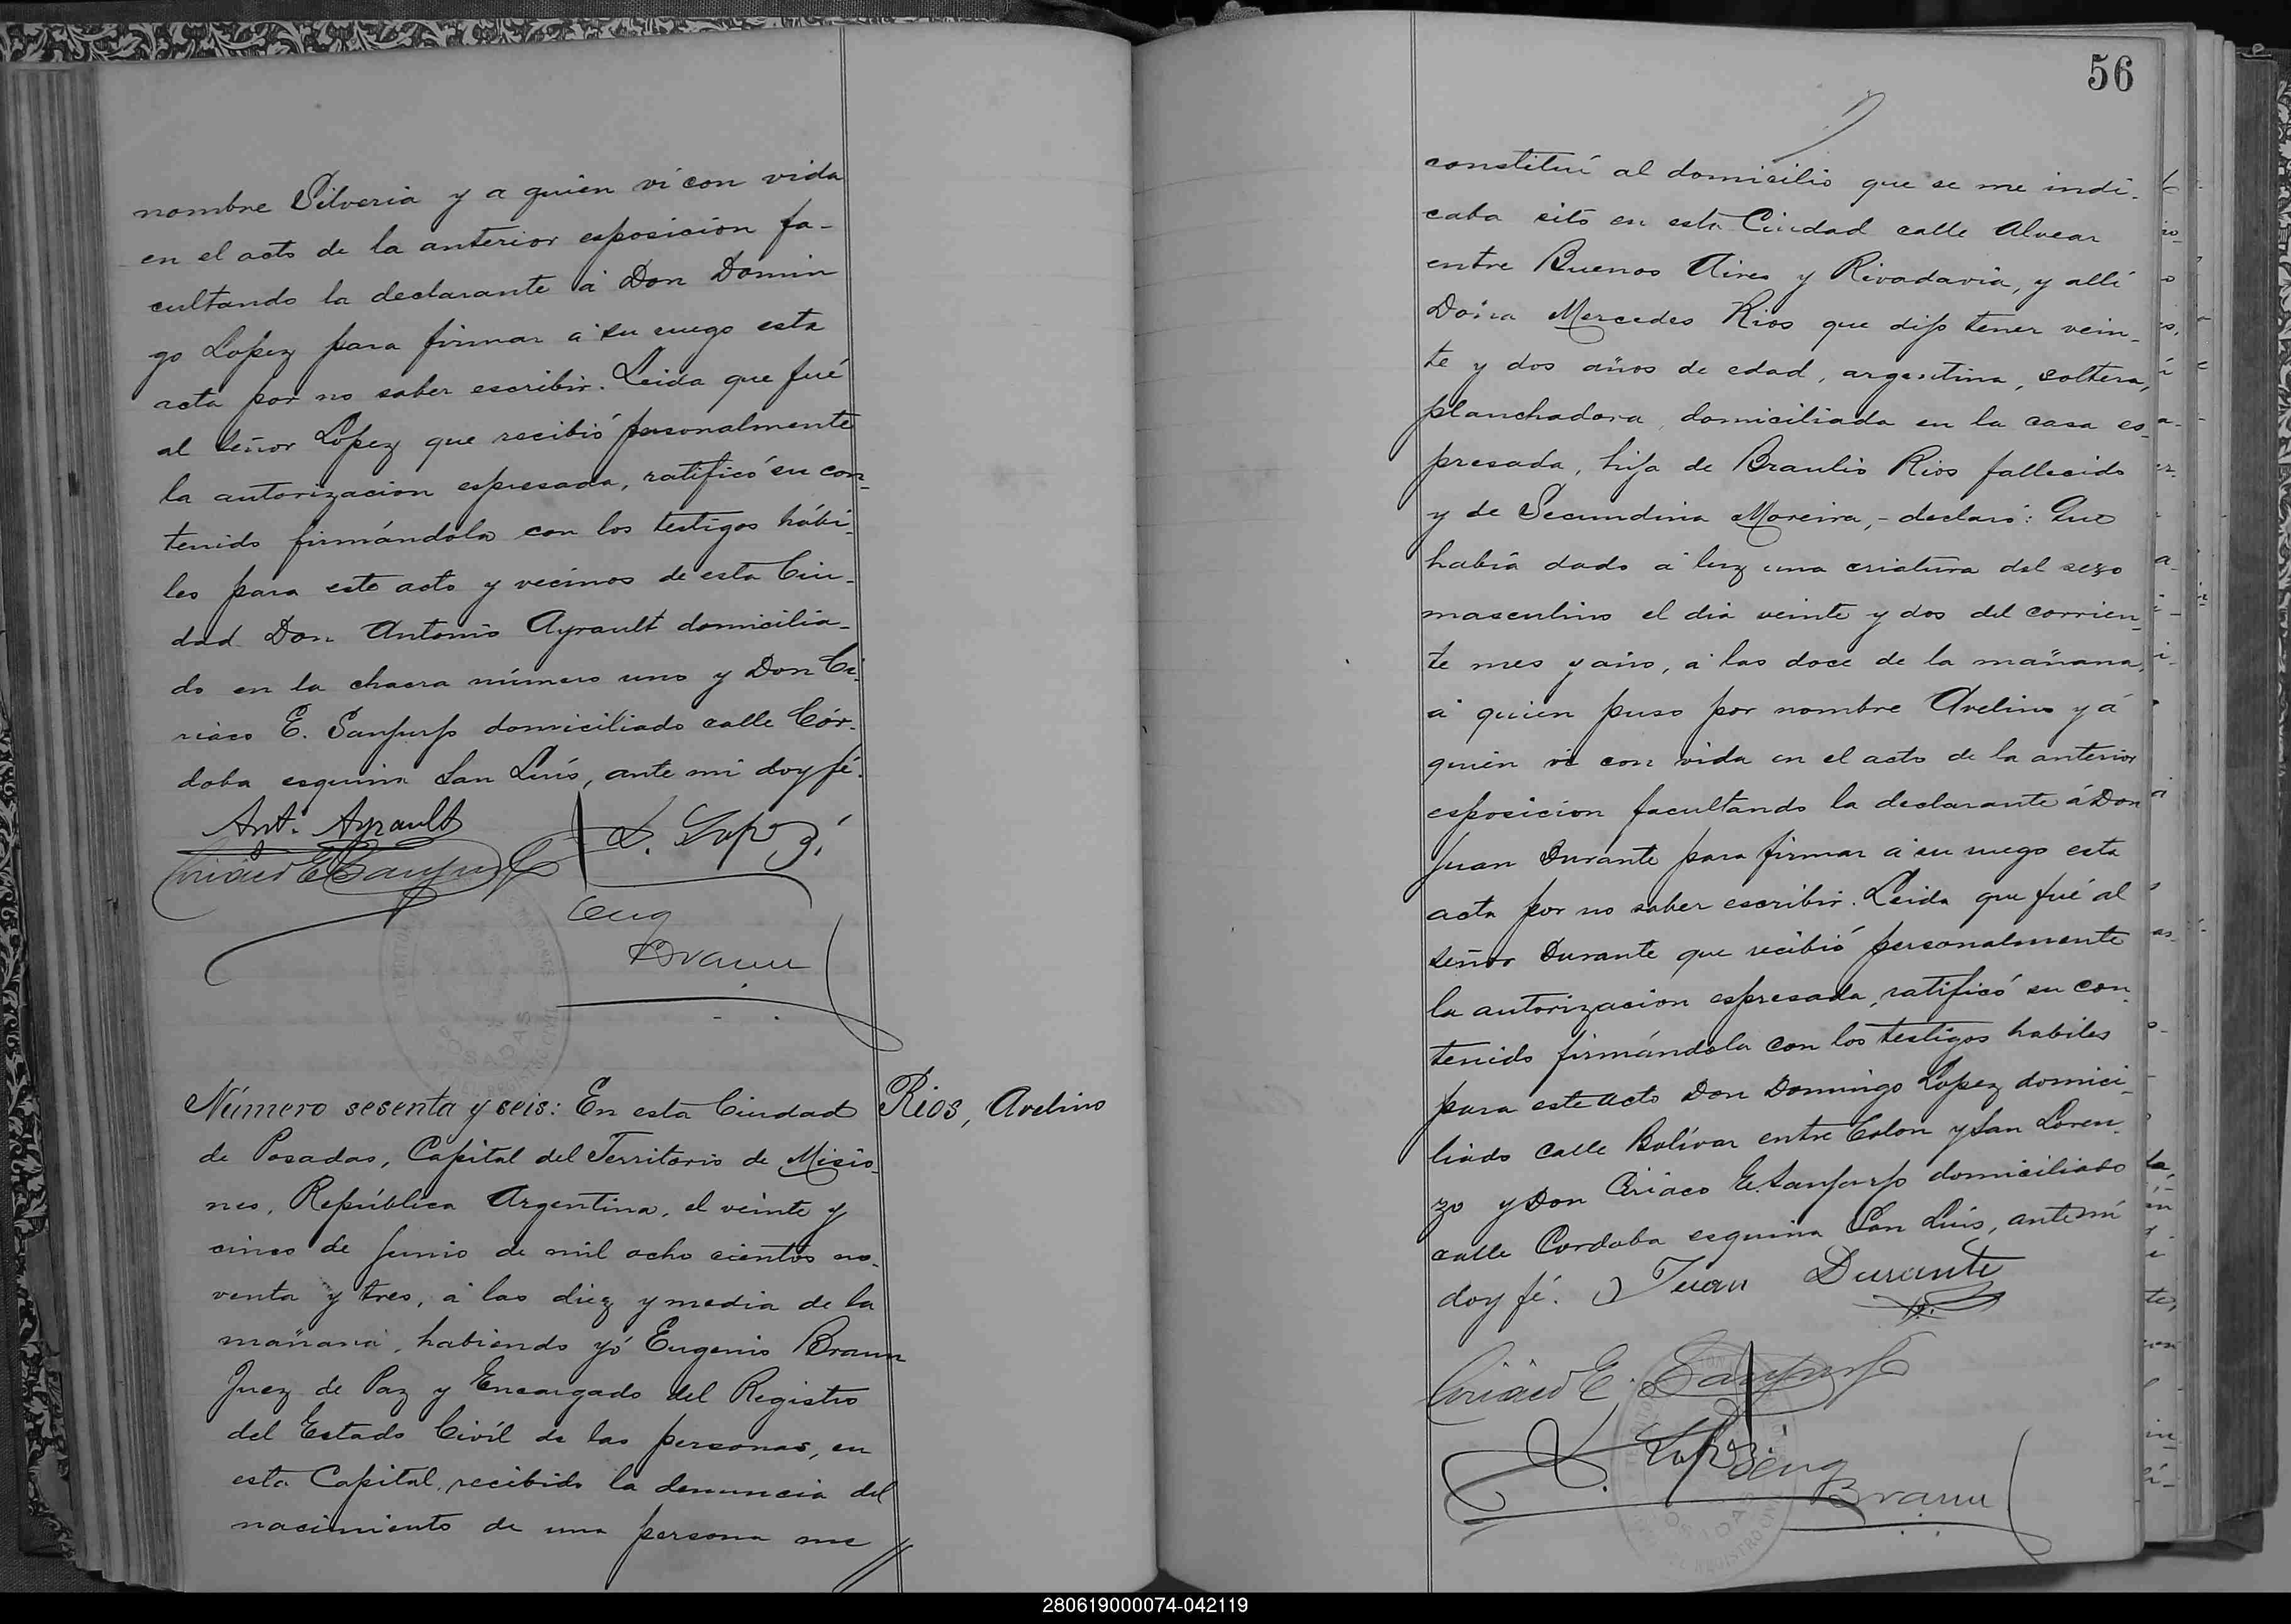 nombre Silveria y a quien ví con vida
en el acto de la anterior esposicion fa-
cultando la declarante á Don Domin
go Lopez para firmar á su ruego esta
acta por no saber escribir. Leida que fué
al Señor Lopez que recibió personalmente
la autorizacion espresada, ratificó su con-
tenido firmándola con los testigos hábi-
les para este acto y vecinos de esta Ciu-
dad Don Antonio Ayrault domicilia-
do en la chacra número uno y Don Ci-
riaco E. Sanjurjo domiciliado calle Cór-
doba esquina San Luís, ante mi doy fé.
Ant. Ayrault
Ciriaco E Sanjurjo
D. Lopez
Eug
Braun
POSADAS
Número sesenta y seis: En esta Ciudad
Rios, Avelino
de Posadas, Capital del Territorio de Misio-
nes, República Argentina, el veinte y
cinco de Junio de mil ocho cientos no-
venta y tres, á las diez y media de la
mañana, habiendo yó Eugenio Braun
Juez de Paz y Encargado del Registro
del Estado Civíl de las personas, en
esta Capital, recibido la denuncia del
nacimiento de una persona me
56
constituí al domicilio que se me indi-
caba sito en esta Ciudad calle Alvear
entre Buenos Aires y Rivadavia, y allí
Doña Mercedes Rios que dijo tener vein-
te y dos años de edad, argentina, soltera,
planchadora, domiciliada en la casa es-
presada, hija de Braulio Rios fallecido
y de Secundina Moreira, - declaró: Que
habia dado á luz una criatura del sexo
masculino el dia veinte y dos del corrien-
te mes y año, á las doce de la mañana,
á quien puso por nombre Avelino y á
quien ví con vida en el acto de la anterior
esposicion facultando la declarante á Don
Juan Durante para firmar á su ruego esta
acta por no saber escribir. Leida que fué al
señor Durante que recibió personalmente
la autorizacion espresada, ratificó su con-
tenido firmándola con los testigos habiles
para este acto Don Domingo Lopez domici-
liado calle Bolívar entre Colon y San Loren-
zo y Don Ciriaco E. Sanjurjo domiciliado
calle Cordoba esquina San Luis, ante mí
doy fé. Juan Durante
Ciriaco E. Sanjurjo
D. Lopez
Eug
Braun
280619000074-042119